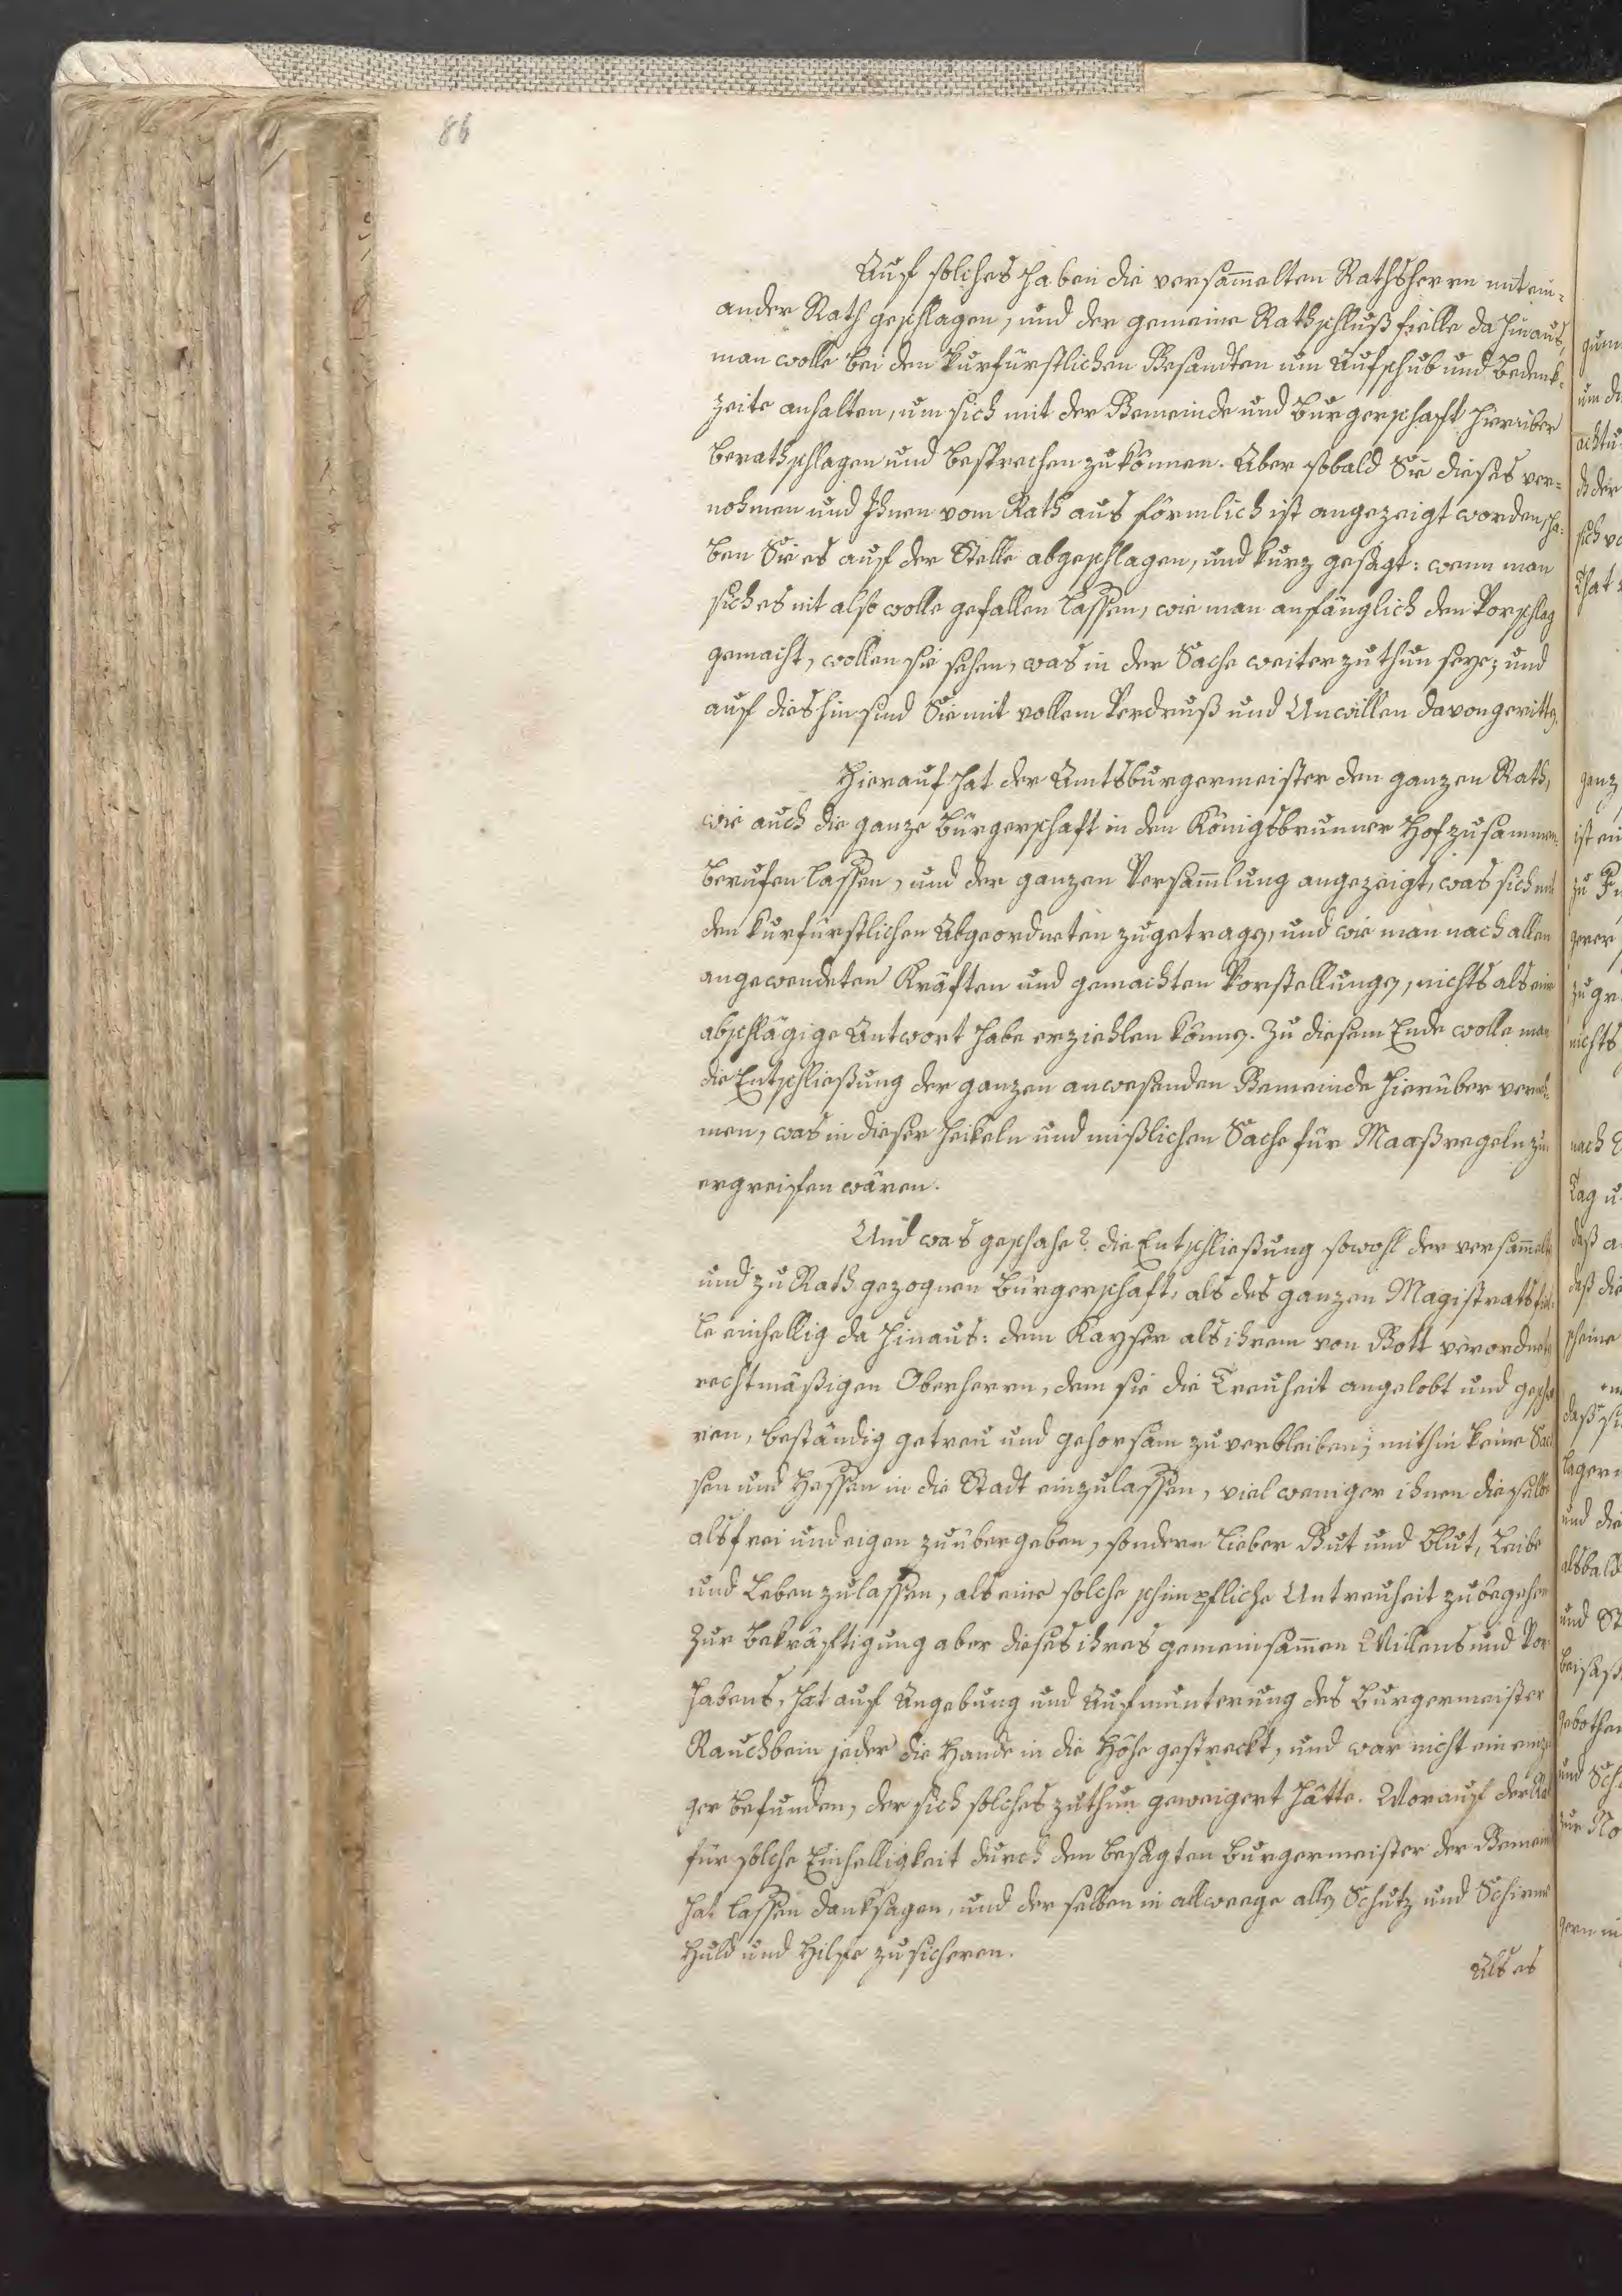 86
Auf solches haben die versam̅elten Rathsherrn mit ein-
ander Rath geschlagen, und der gemeine Rathschluß fielle da hinaus,
man wolle bei den kurfürstlichen Gesandten um Aufschub und Bedenk-
zeite anhalten, um sich mit der Gemeinde und Burgerschaft hierüber
berathschlagen und besprechen zu können. Aber sobald Sie dieses ver-
nohmen und Ihnen vom Rath aus förmlich ist angezeigt worden, ha-
ben Sie es auf der Stelle abgeschlagen, und kurz gesagt: wenn man
sich es nit also wolle gefallen lassen, wie man anfänglich den Vorschlag
gemacht, wollen sie sehen, was in der Sache weiter zu thun seye; und
auf dies hin sind Sie mit vollem Verdruß und Unwillen davongeritten.
Hierauf hat der Amtsburgermeister den ganzen Rath,
wie auch die ganze Bürgerschaft in den Königsbrunner Hof zusammen-
berufen lassen, und der ganzen Versam̅lung angezeigt, was sich mit
den kurfürstlichen Abgeordneten zugetragen, und wie man nach allen
angewendeten Kräften und gemachten Vorstellungen, nichts als eine
abschlägige Antwort habe erziehlen können. Zu diesem Ende wolle man
die Entschließung der ganzen anwesenden Gemeinde hierüber verneh-
men, was in dieser heikeln und mißlichen Sache für Maaßregeln zu
ergreifen wären.
Und was geschahe? die Entschließung sowohl der versam̅elten
und zu Rath gezognen Bürgerschaft, als des ganzen Magistrats fiel-
le einhellig da hinaus: dem Kayser als ihrem von Gott verordneten
rechtmäßigen Oberherrn, dem sie die Treuheit angelobt und geschwo-
ren, beständig getreu und gehorsam zu verbleiben; mithin keine Sach-
sen und Hessen in die Stadt einzulassen, viel weniger ihnen dieselbe
als frei und eigen zu übergeben, sondern lieber Gut und Blut, Leibe
und Leben zu lassen, als eine solche schimpfliche Untreuheit zu begehen
Zur Bekräftigung aber dieses ihres gemeinsam̅en Willens und Vor-
habens, hat auf Angebung und Aufmunterung des Burgermeister
Rauchbein jeder die Hande in die Höhe gestreckt, und war nicht ein einzi-
ger befunden, der sich solches zuthun geweigert hätte. Worauf der Rat
für solche Einhelligkeit durch den besagten Burgermeister der Gemein
hat lassen danksagen, und derselben in allweege allen Schutz und Schirm
Huld und Hilfe zusicheren.
Als es